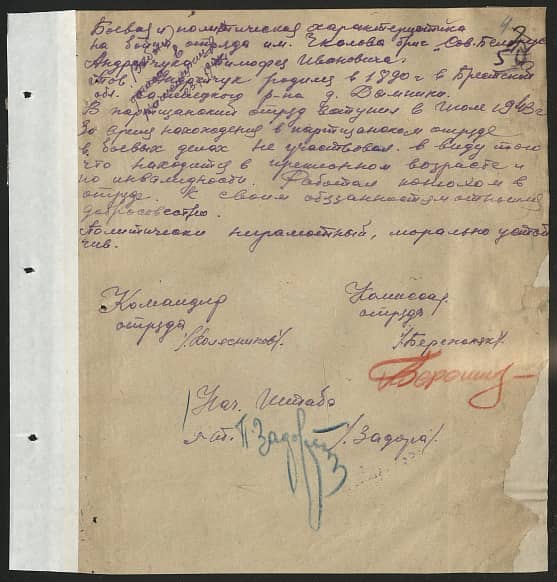 Боевая и политическая характеристика
на бойца отряда им. Чкалова бриг. "Сов. Белорус
Андрейчука Тимофея Ивановича.
тов. Андрейчук родился в 1890 г в Брестской
обл. р-на д. Дымники.
В партизанский отряд вступил в Июле 1943 г
За время нахождения в партизанском отряде
в боевых делах не участвовал. в виду того
что находится в преклонном возрасте и
по инвалидности. Работал конюхом в
отряде. К своим обязанностям относился
добросовестно.
Политически неграмотный, морально устой
чив.
Командир
отряда
/Колесников/.
Комиссар
отряда
Нач. Штаба
л-т. /Задора/